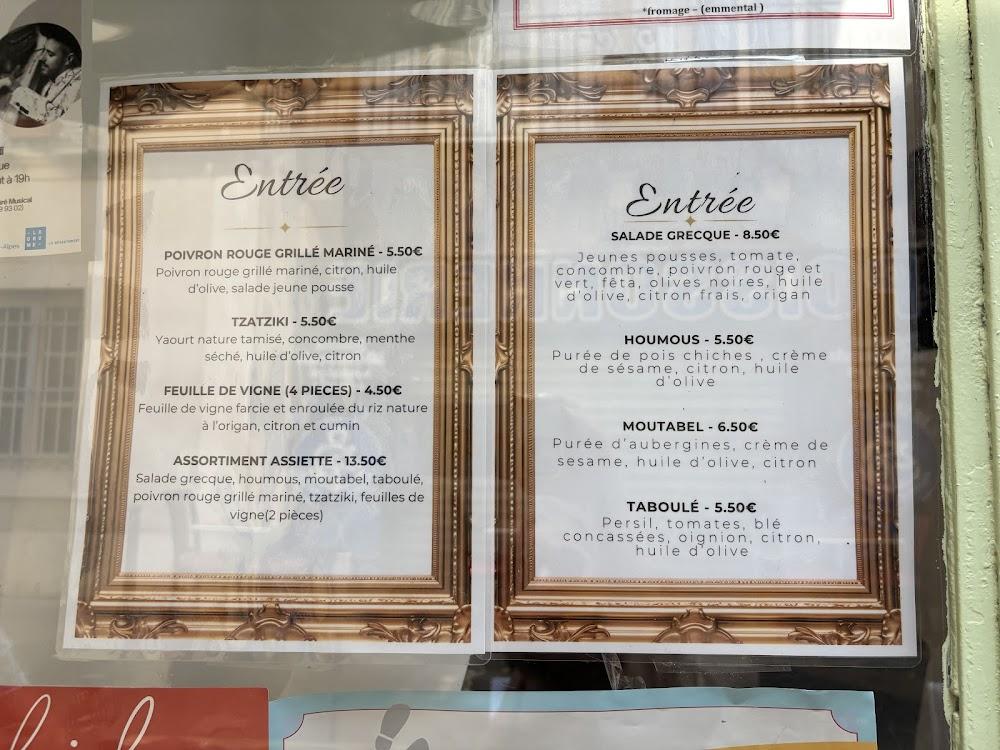 *fromage – (emmental )
ue
t à 19h
ré Musical
9 93 02)
-Alpes
LA
DRÔ
ME
LE DÉPARTEMENT
Entrée
POIVRON ROUGE GRILLÉ MARINÉ - 5.50€
Poivron rouge grillé mariné, citron, huile
d'olive, salade jeune pousse
TZATZIKI - 5.50€
Yaourt nature tamisé, concombre, menthe
séché, huile d'olive, citron
FEUILLE DE VIGNE (4 PIECES) - 4.50€
Feuille de vigne farcie et enroulée du riz nature
à l'origan, citron et cumin
ASSORTIMENT ASSIETTE - 13.50€
Salade grecque, houmous, moutabel, taboulé,
poivron rouge grillé mariné, tzatziki, feuilles de
vigne(2 pièces)
Entrée
SALADE GRECQUE - 8.50€
Jeunes pousses, tomate,
concombre, poivron rouge et
vert, fêta, olives noires, huile
d'olive, citron frais, origan
HOUMOUS - 5.50€
Purée de pois chiches , crème
de sésame, citron, huile
d'olive
MOUTABEL - 6.50€
Purée d'aubergines, crème de
sesame, huile d'olive, citron
TABOULÉ - 5.50€
Persil, tomates, blé
concassées, oignion, citron,
huile d'olive